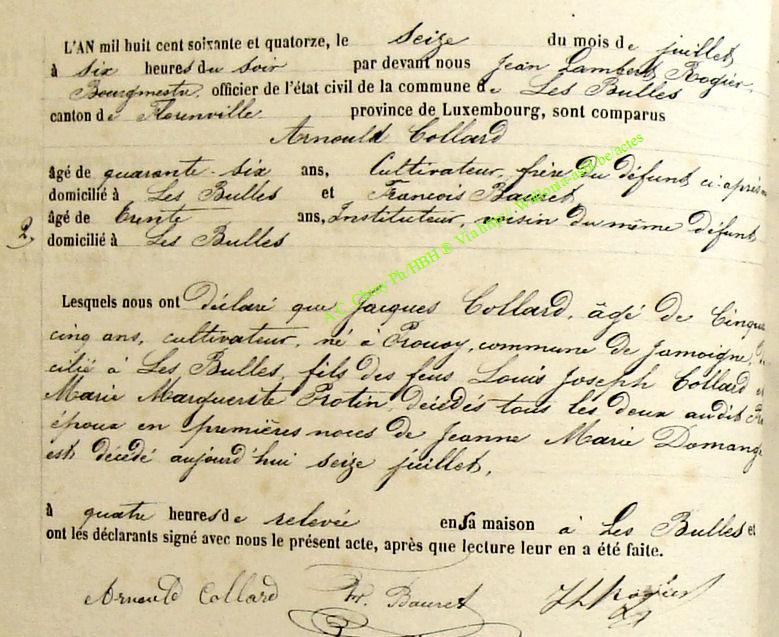 L'AN mil huit cent soixante et quatorze, le seize du mois de juillet
à six heures du soir par devant nous Jean Lambert Rogier,
Bourgmestre, officier de l'état civil de la commune de Les Bulles
canton de Florenville province de Luxembourg, sont comparus
Arnould Collard
âgé de quarante-six ans, Cultivateur, frère du défunt ci après
domicilié à Les Bulles et François Bauret
2, âgé de trente ans, Instituteur, voisin du même défunt
domicilié à Les Bulles
Lesquels nous ont déclaré que Jacques Collard, âgé de Cinqua
cinq ans, cultivateur, né à Prouvy, commune de Jamoigne, do
cilié à Les Bulles, fils des feus Louis Joseph Collard et
Marie Marguerite Protin, décédés tous les deux audit
époux en premières noces de Jeanne Marie Domange
est décédé aujourd'hui seize juillet,
à quatre heures de relevée en sa maison à Les Bulles et
ont les déclarants signé avec nous le présent acte, après que lecture leur en a été faite.
Arnould Collard Fr. Bauret JLRogier